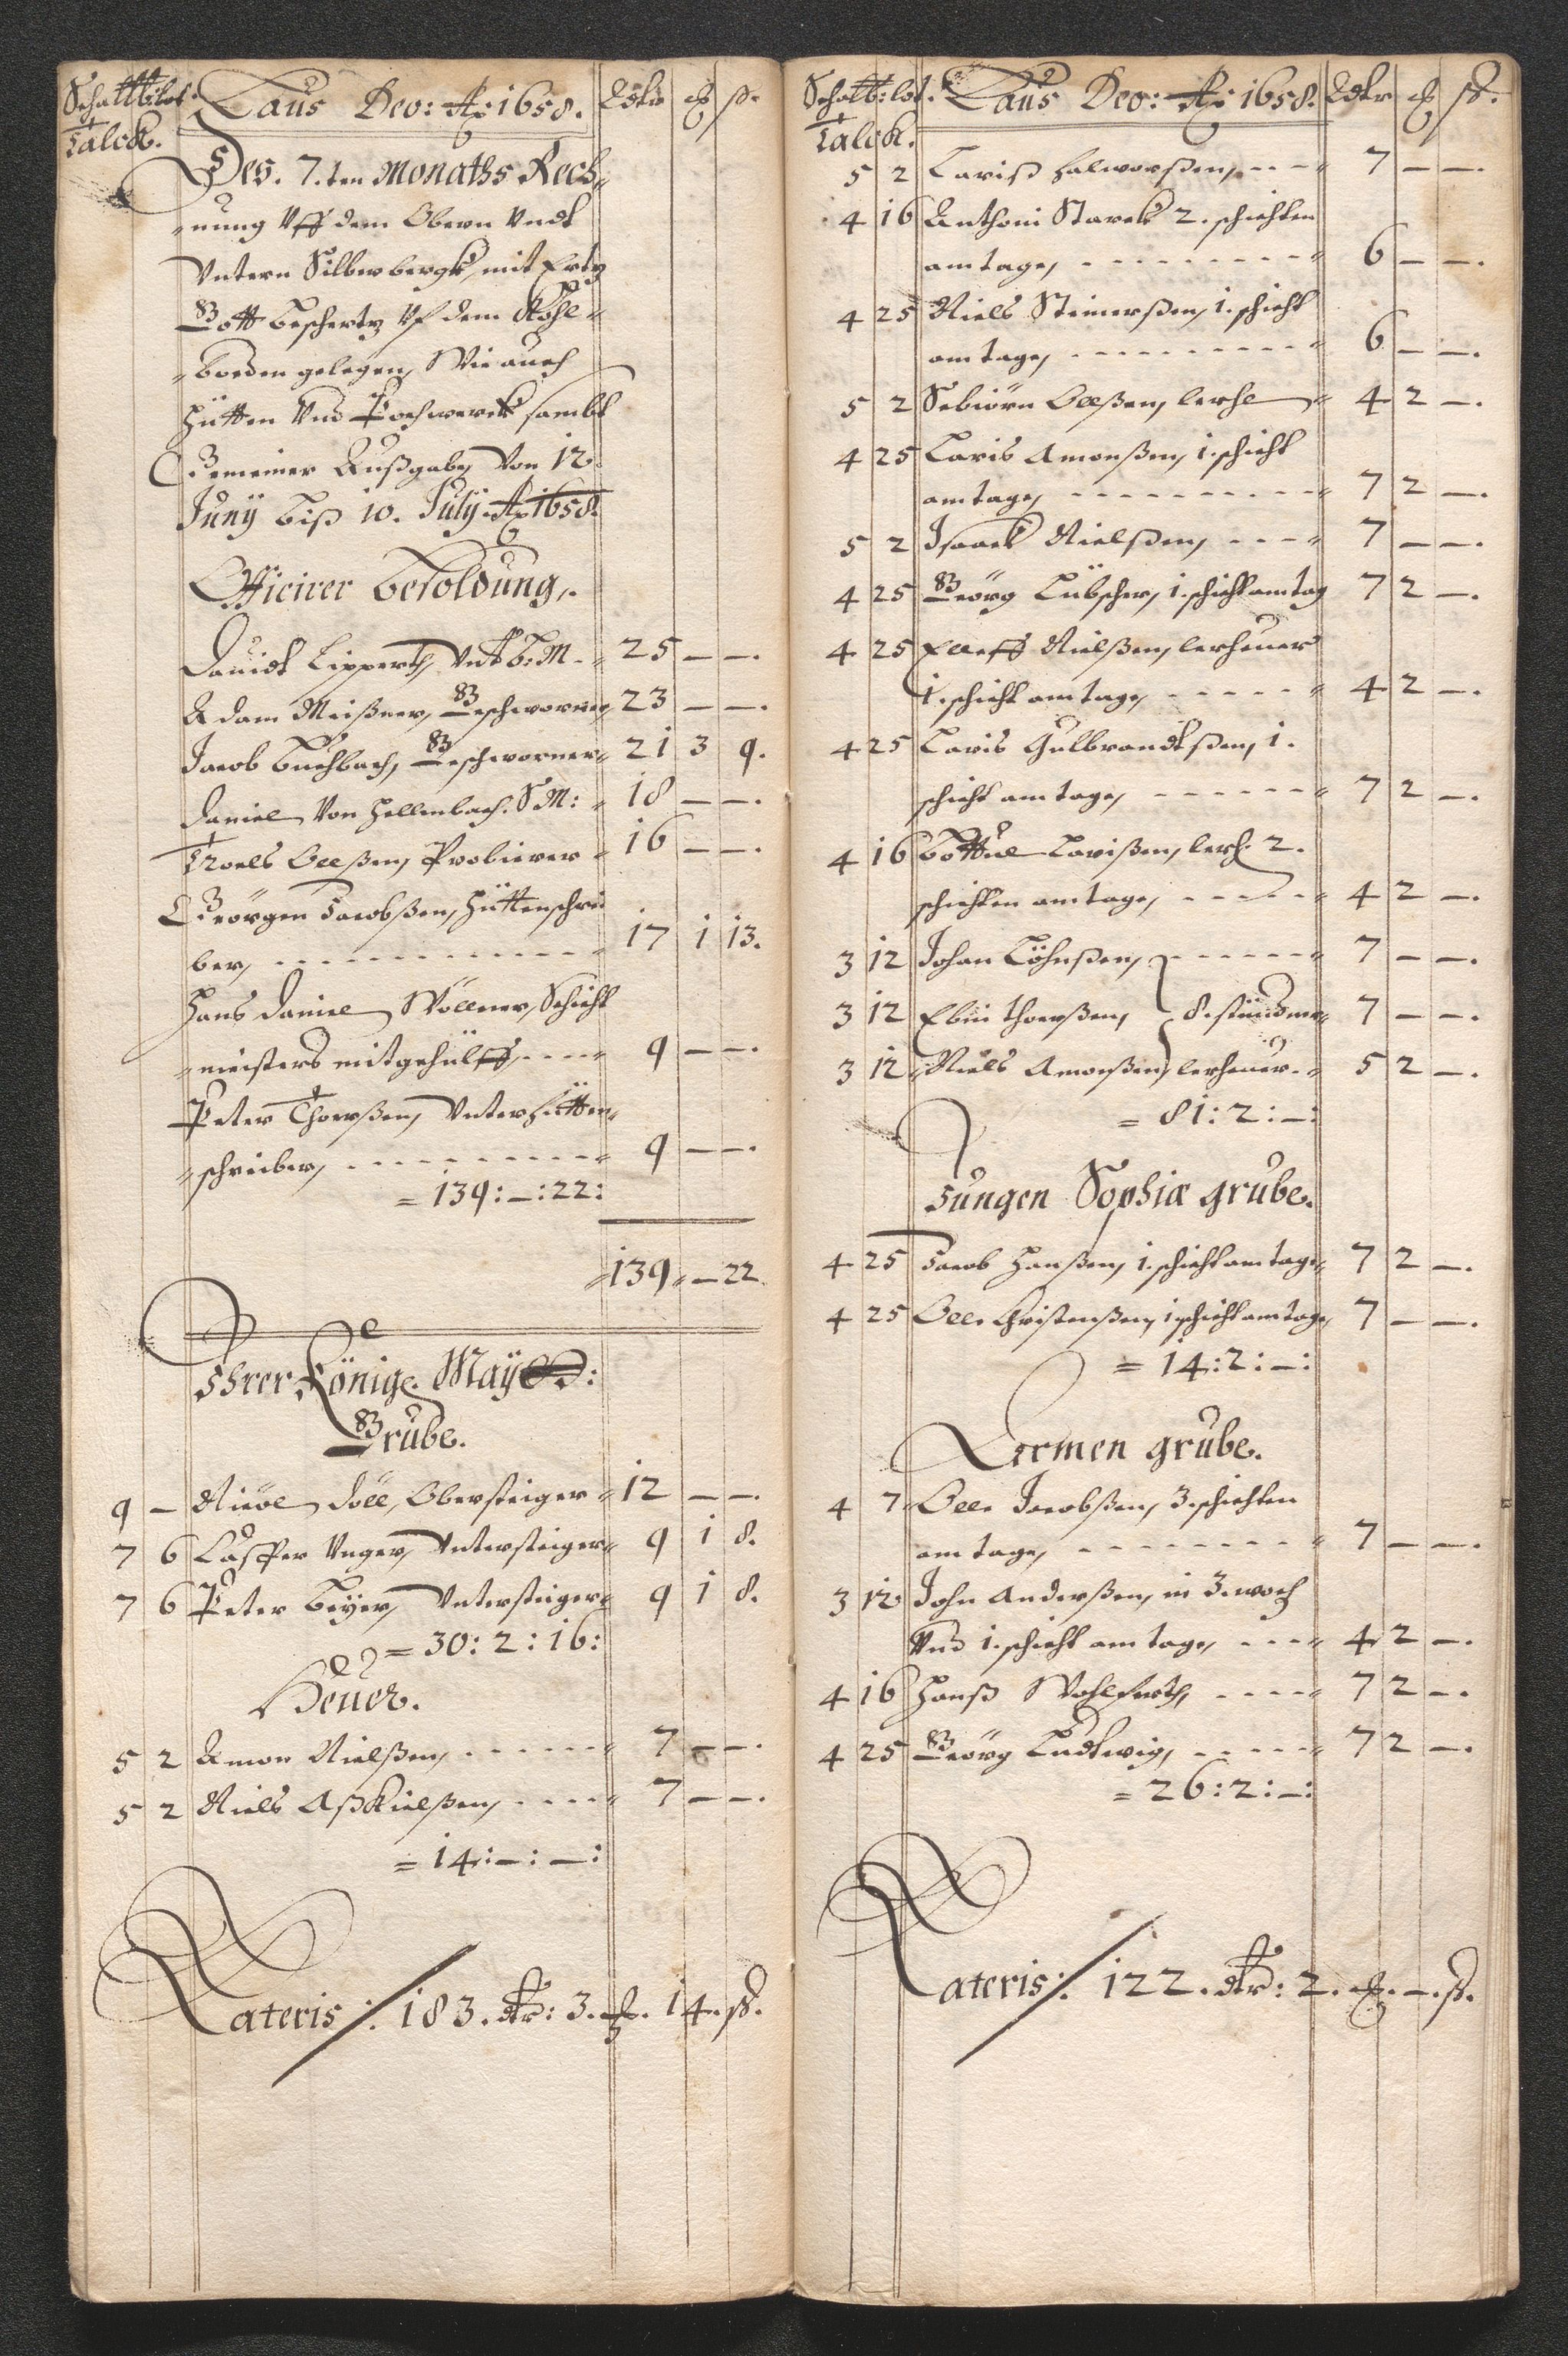 Schatt: lot
Talck.
Laus Deo: Ao 1658. Rdtr ß.
Des. 7. ten Monaths Rech„
„nung Vff dem Obern Vndt
Vntern Silberbergk, mit Ertz
Gott beschertz Vf dem Kohl„
„boden gelegen, Wie auch
Hütten Vnd Pochwerck sambt
Gemeiner Außgabe, Von 12.
Junÿ biß 10. Julÿ Ao 1658.
Officirer besoldung,.
Dauidt Lippertt, Vnt b: M. „ 25 — —.
Adam Meißner, Geschworner, 23 — —.
Jacob Buchbach, Geschworner „ 21 3 9.
Daniel Von Hellenbach. S M: „ 18 — —.
Troels Olleßen, Probierer „ 16 — —.
Geörgen Jacobßen, Hüttenschrei
ber, 17 1 13.
Hans Daniel Wöllner, Schicht
„meisters mitgehülff, „ 9 — —.
Peter Thoerßen, Vnter hütten„
„schreiber, „ 9 — —.
= 139: —: 22:
„139 „ — 22.
Ihrer Königl. Maÿ
Grube.
9 — Nicol Doll, Obersteiger „ 12 — —.
7 6 Casper Vnger, Vntersteiger „ 9 1 8.
7 6 Peter Beÿer, Vntersteiger „ 9 1 8.
= 30: 2: 16:
Heuer.
5 2 Amon Nielßen, „ 7 — —.
5 2 Niels Aßkielßen, „ 7 — —.
= 14: —: —:
Lateris: 183. dtr: 3. 14. ß.
Schatt: lot.
Talck.
Laus Deo: Ao 1658. Rdtr ß.
5 2 Lariß Halworßen, „ 7 — —.
4 16 Anthoni Starck 2. schichten
am tage, „ 6 — —.
4 25 Niels Steinerßen, 1. schicht
am tage, „ 6 — —.
5 2 Sebiörn Olleßen, lerhe „ 4 2 —.
4 25 Laris Amonßen, 1. schicht
am tage, „ 7 2 —.
5 2 Isaack Nielßen, „ 7 — —.
4 25 Geörg Lübscher, 1. schicht am tag 7 2 —.
4 25 Elleff Nielßen, lerheuer
1. schicht am tage, „ 4 2 —.
4 25 Laris Gulbrandtßen, 1.
schicht am tage, „ 7 2 —.
4 16 Bottul Larißen, lerh. 2.
schichten am tage, „ 4 2 —.
3 12 Johan Löhnßen, „ 7 — —.
3 12 Ebin Thoerßen, 8. stünd „ 7 — —.
3 12 Niels Amonßen, lerheuer. „ 5 2 —.
= 81: 2: —:
Jungen Sophiæ grube.
4 25 Jacob Hanßen, 1. schicht am tage „ 7 2 —.
4 25 Olle Christenßen, 1. schicht am tage, 7 — —.
= 14: 2: —:
Lermen grube.
4 7 Olle Jacobßen, 3. schichten
am tage, „ 7 — —.
3 12 John Anderßen, in 3. woch
Vnd 1. schicht am tage, „ 4 2 —.
4 16 Hanß Wohlfarth, „ 7 2 —.
4 25 Geörg Ludtwig, „ 7 2 —.
= 26: 2: —:
Lateris: 122. dtr: 2. —. ß.